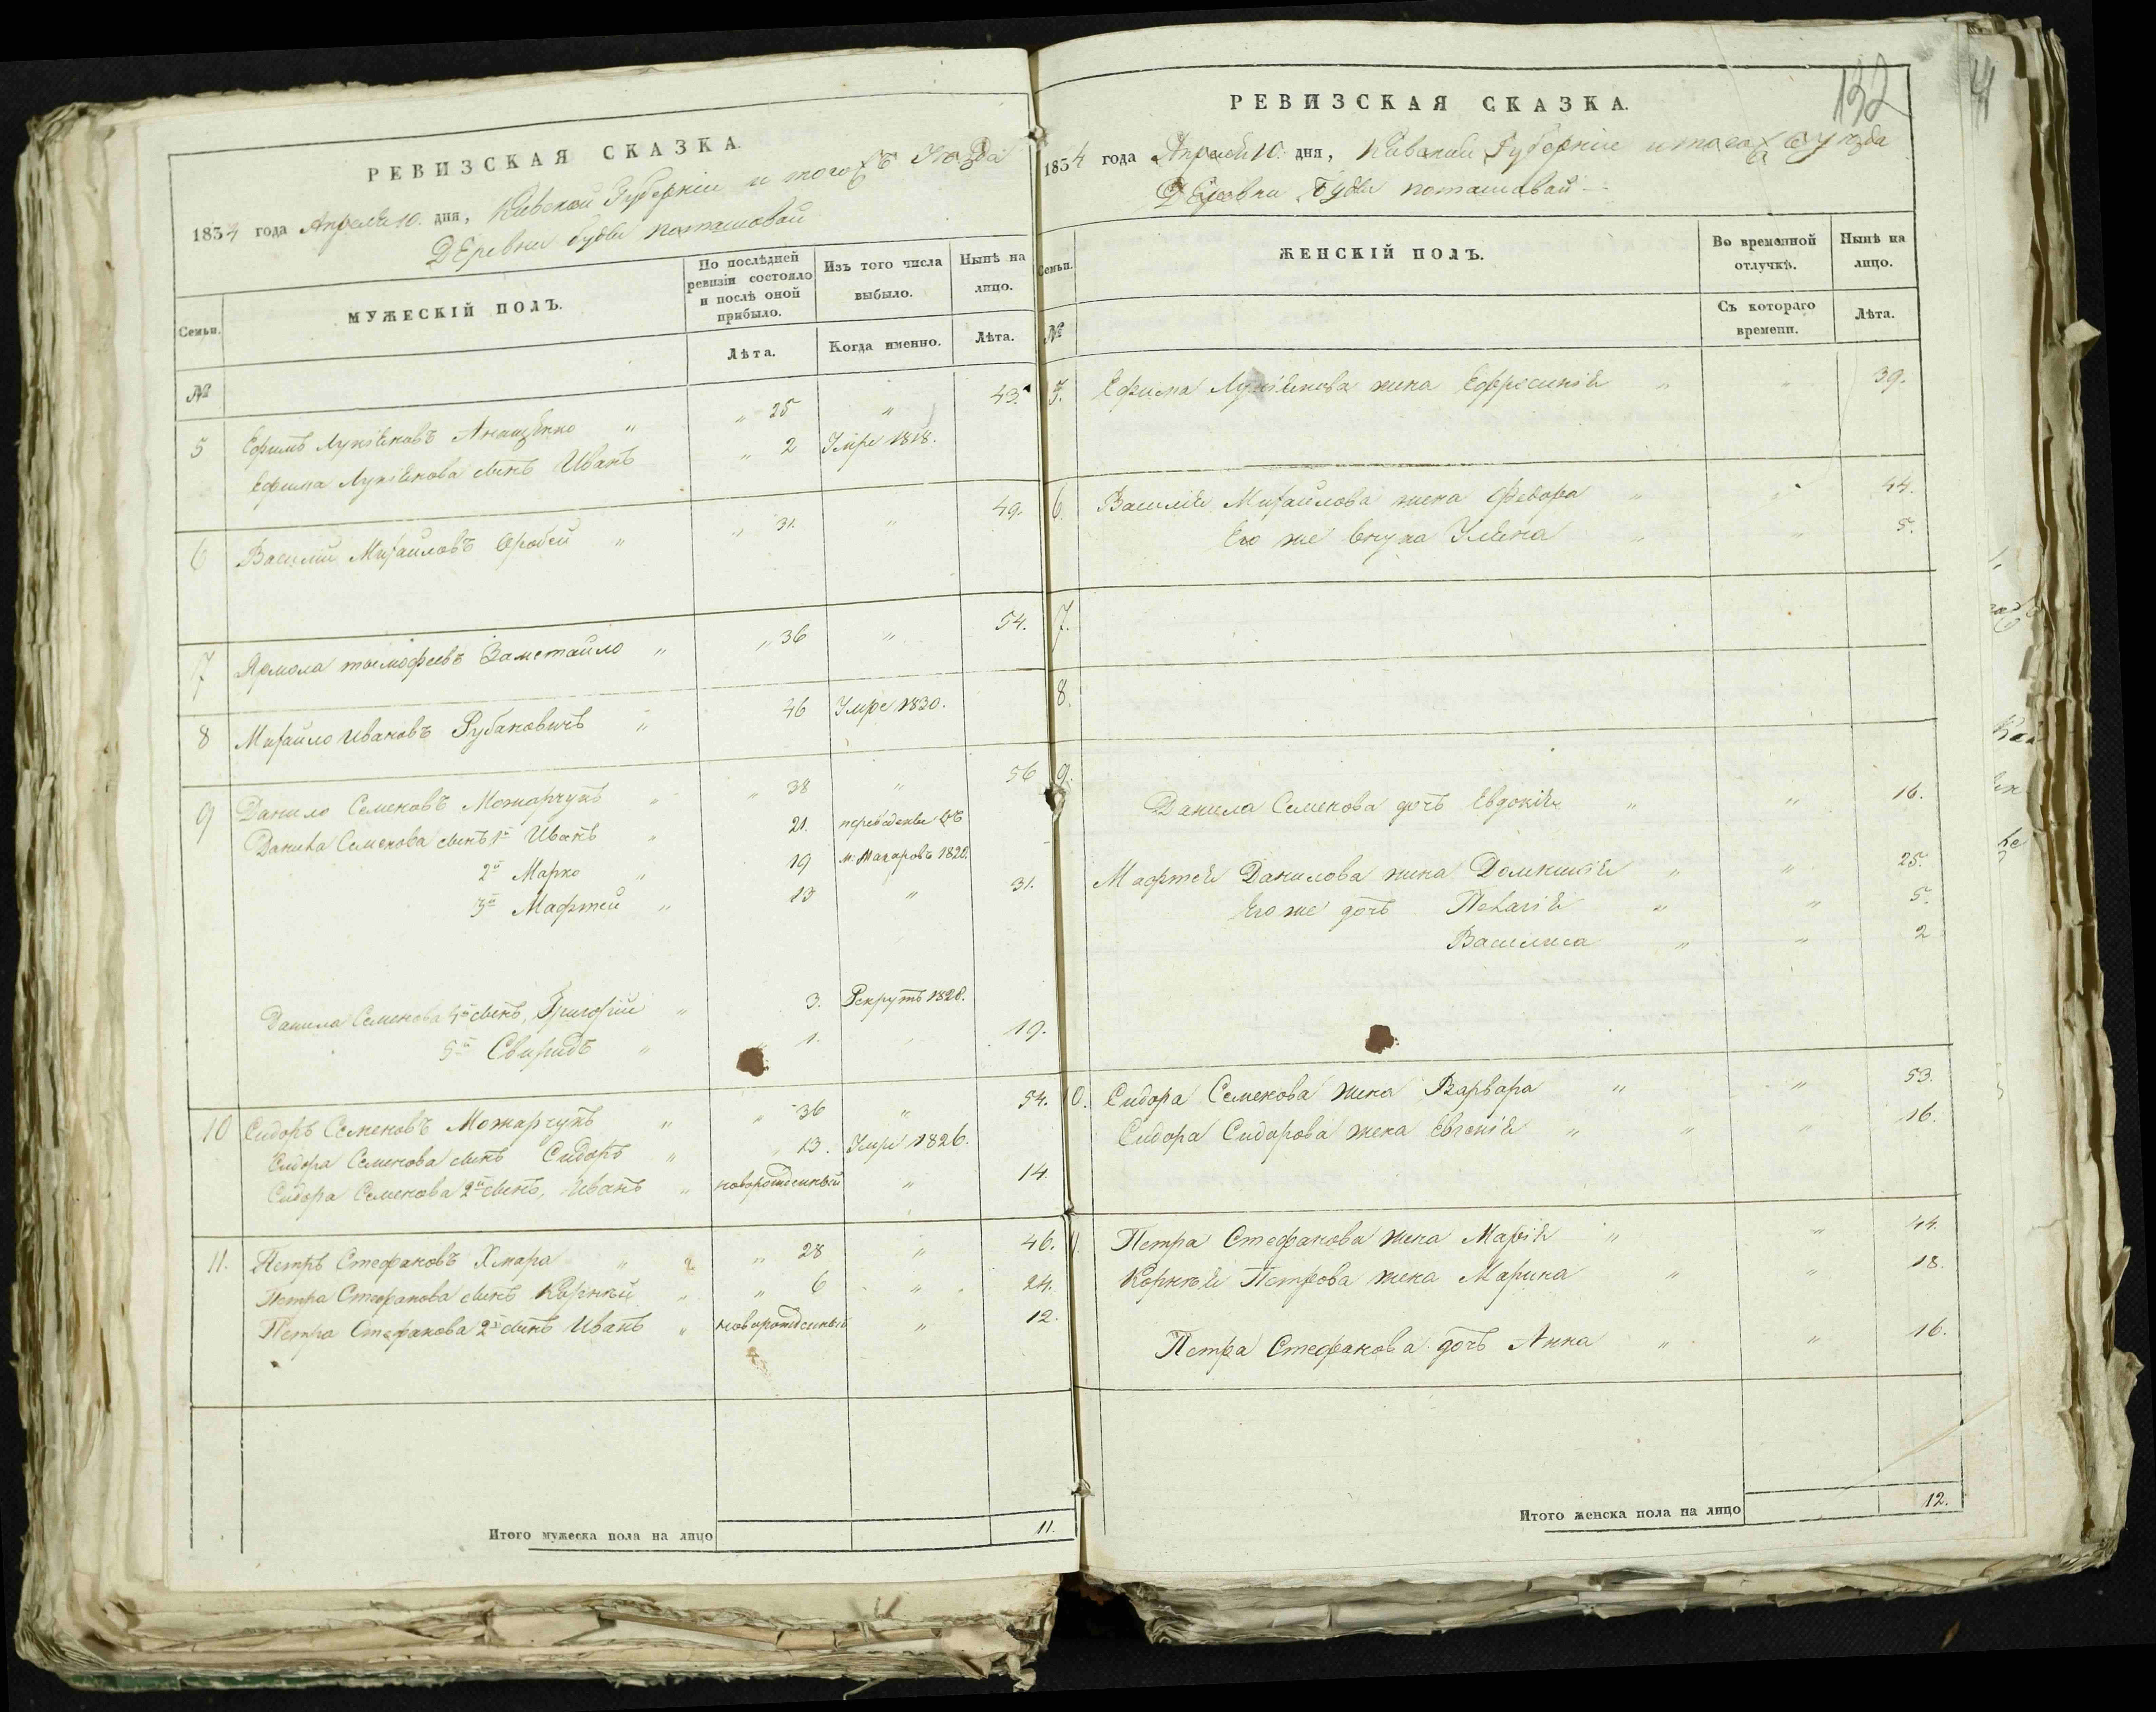 РЕВИЗСКАЯ СКАЗКА.
1834 года Апреля 10. дня, Киевской Губерніи и тогожъ Уезда
Деревни Буды поташовой
Семьи.
МУЖЕСКІЙ ПОЛЪ.
По послѣдней ревизіи состояло и послѣ оной прибыло.
Изъ того числа выбыло.
Нынѣ на лицо.
№
Лѣта.
Когда именно.
Лѣта.
5 Ефимъ Лукіяновъ Анищенко " " 25 " 43.
Ефима Лукіянова сынъ Иванъ " 2 Умре 1818.
6 Василій Михайловъ " " 31. " 49.
7 Ярмола тимофеевъ Заметайло " " 36 " 54.
8 Михайло Ивановъ Рубановичъ " 46 Умре 1830.
9 Данило Семеновъ Можарчукъ " " 38 " 56
Данила Семенова сынъ 1й Иванъ " 21. переведены въ
2й Марко " 19 м. Макаровъ 1820.
3й Мафтей " 13 " 31.
Данила Семенова 4й сынъ, Григорій " 3. Рекрутъ 1828.
5й Свиридъ " " 1. 19.
10 Сидоръ Семеновъ Можарчукъ " " 36 " 54.
Сидора Семенова сынъ Сидоръ " " 13. Умре 1826.
Сидора Семенова 2й сынъ, Иванъ " новорожденный " 14.
11. Петръ Стефановъ Хмара " " 28 " 46.
Петра Стефанова сынъ Корнѣй " " 6 " 24.
Петра Стефанова 2й сынъ Иванъ " новорожденный " 12.
Итого мужеска пола на лицо 11.
132
РЕВИЗСКАЯ СКАЗКА.
1834 года Апреля 10. дня, Киевской Губерніи и тогожъ уезда
Деревни Буды поташовой
Семьи.
ЖЕНСКІЙ ПОЛЪ.
Во временной отлучкѣ.
Нынѣ на лицо.
№
Съ котораго времени.
Лѣта.
5. Ефима Лукіянова жена Ефросинія " " 39.
6. Василія Михайлова жена Федора " " 44.
Его же внука Уляна " " 5.
7.
8.
9.
Данила Семенова дочь Евдокія " " 16.
Мафтея Данилова жена Домникія " " 25.
Его же дочь Пелагія " " 5.
Василиса " " 2
10. Сидора Семенова жена Варвара " " 53.
Сидора Сидорова жена Евгенія " " " 16.
11. Петра Стефанова жена Марія " " 44.
Корнѣя Петрова жена Марина " " 18.
Петра Стефанова дочь Анна " " 16.
Итого женска пола на лицо 12.